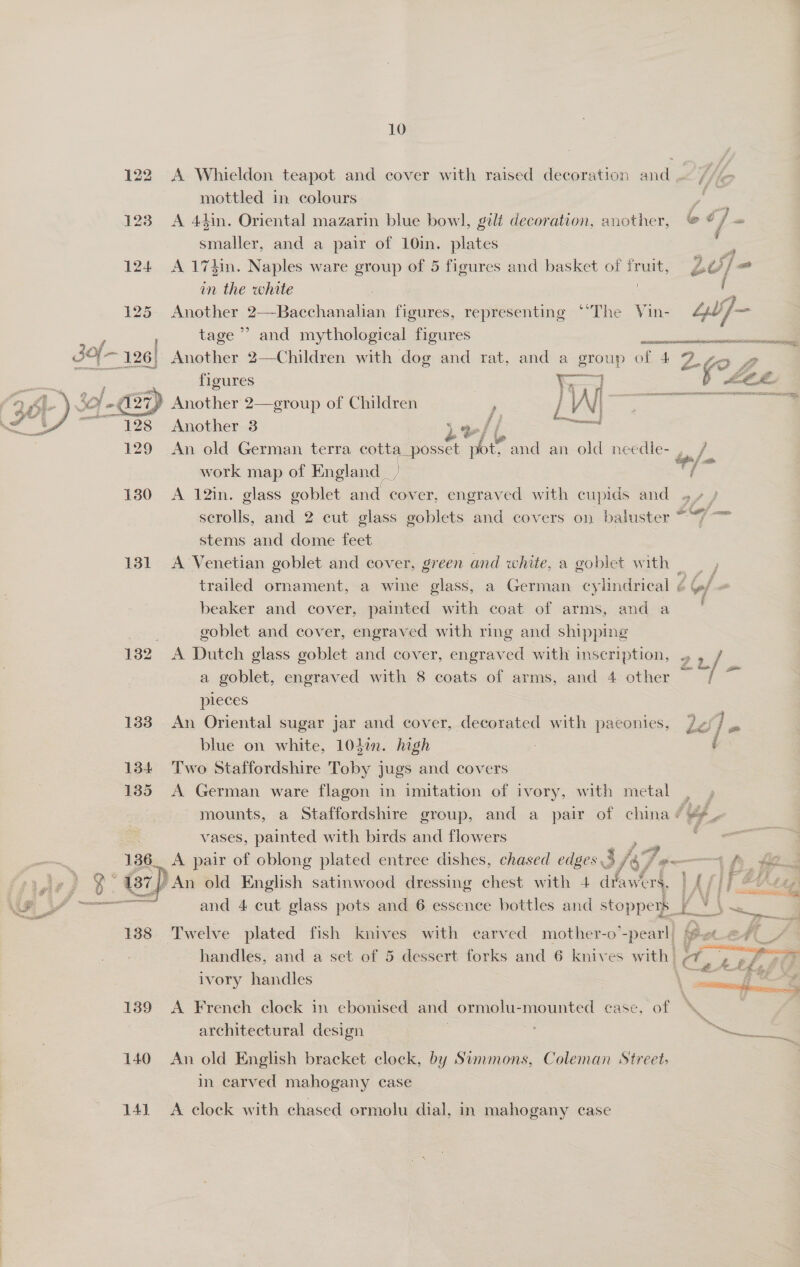 10
122 A Whieldon teapot and cover with raised decoration and
mottled in colours
123 A 4½in. Oriental mazarin blue bowl, gilt decoration, another,
smaller, and a pair of 10in. plates
124 A 17½in. Naples ware group of 5 figures and basket of fruit,
in the white
125 Another 2—Bacchanalian figures, representing “The Vin-
tage” and mythological figures
30/- 126 Another 2—Children with dog and rat, and a group of 4
figures
30/- 127 Another 2—group of Children
128 Another 3
129 An old German terra cotta posset pot, and an old needle-
work map of England
130 A 12in. glass goblet and cover, engraved with cupids and
scrolls, and 2 cut glass goblets and covers on baluster
stems and dome feet
131 A Venetian goblet and cover, green and white, a goblet with
trailed ornament, a wine glass, a German cylindrical
beaker and cover, painted with coat of arms, and a
goblet and cover, engraved with ring and shipping
132 A Dutch glass goblet and cover, engraved with inscription,
a goblet, engraved with 8 coats of arms, and 4 other
pieces
133 An Oriental sugar jar and cover, decorated with paeonies,
blue on white, 10½in. high
134 Two Staffordshire Toby jugs and covers
135 A German ware flagon in imitation of ivory, with metal
mounts, a Staffordshire group, and a pair of china
vases, painted with birds and flowers
136 A pair of oblong plated entree dishes, chased edges
137 An old English satinwood dressing chest with 4 drawers,
and 4 cut glass pots and 6 essence bottles and stoppers
138 Twelve plated fish knives with carved mother-o’-pearl
handles, and a set of 5 dessert forks and 6 knives with
ivory handles
139 A French clock in ebonised and ormolu-mounted case, of
architectural design
140 An old English bracket clock, by Simmons, Coleman Street,
in carved mahogany case
141 A clock with chased ormolu dial, in mahogany case